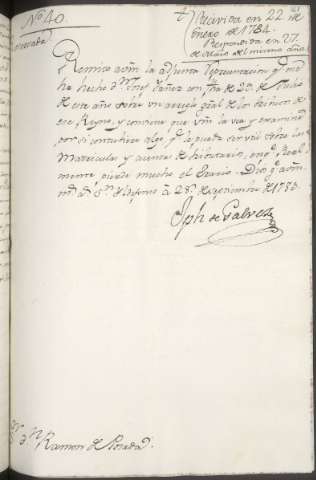 N.º 40.
Recivida en 22 de
Enero de 1784.
Respondida en 27.
de Maio del mismo año.
Remito a Vm la adjunta Representacion q.e me
ha hecho D.n Josef con fha de 20 de Junio
de este año sobre un arreglo gral de los Indios de
ese Reyno, y conviene que Vm la vea y examine
por si contubiere algo q.e le pueda servir sobre las
Matriculas y aumento de tributarios, en q.e Real-
mente pierde mucho el Erario. Dios g.e a Vm
m.s a.s S.n Ildefonso á 25 de Septiembre de 1783.
Jph de Galvez
S.or D.n Ramon de Posada.